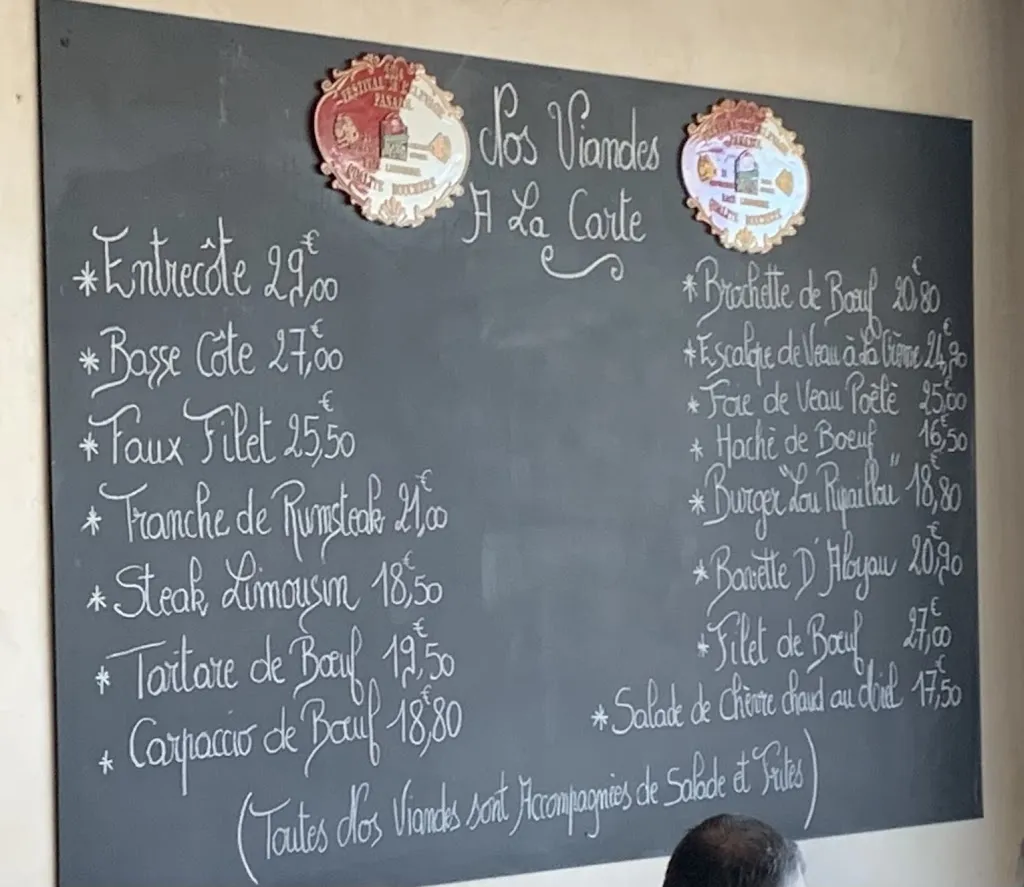 Nos Viandes
A La Carte
*Entrecôte 29,00€
*Basse Côte 27,00€
*Faux Filet 25,50€
*Tranche de Rumsteak 21,00€
*Steak Limousin 18,50€
*Tartare de Bœuf 19,50€
*Carpaccio de Bœuf 18,80€
*Brochette de Bœuf 20,80€
*Escalope de Veau à La Crème 24,90€
*Foie de Veau Poêlè 25,00
*Hachè de Boeuf 16,50€
*Burger "Lou Ripaillou" 18,80€
*Bavette D'Aloyau 20,90€
*Filet de Bœuf 27,00€
*Salade de chèvre chaud au Miel 17,50€
(Toutes Nos Viandes sont Accompagnées de Salade et Frites)
FESTIVAL
QUALITE BOUCHERE
QUALITE BOUCHERE